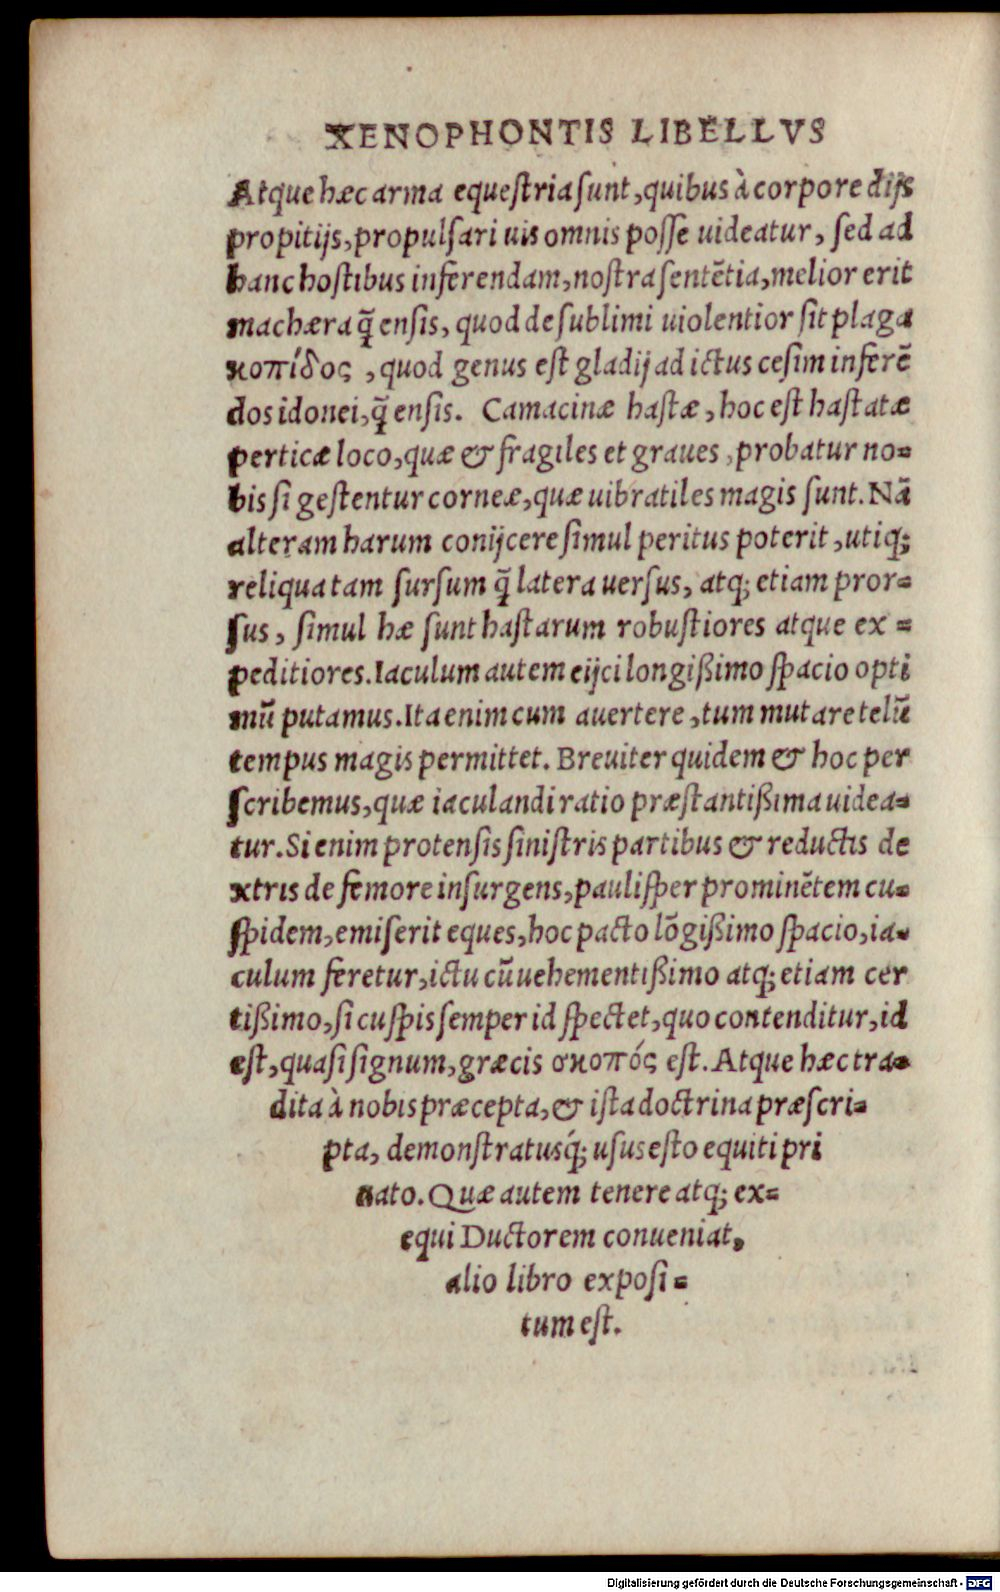 XENOPHONTIS LIBELLVS
Atque hæc arma equeſtria ſunt, quibus à corpore dijs
propitijs, propulſari uis omnis poſſe uideatur, ſed ad
hanc hoſtibus inferendam, noſtra ſentētia, melior erit
machæra q̃ enſis, quod de ſublimi uiolentior ſit plaga
κοπίδος , quod genus eſt gladij ad ictus ceſim inferē
dos idonei, q̃ enſis. Camacinæ haſtæ, hoc eſt haſtatæ
perticæ loco, quæ & fragiles et graues, probatur no=
bis ſi geſtentur corneæ, quæ uibratiles magis ſunt. Nā
alteram harum conijcere ſimul peritus poterit, utiq;
reliqua tam ſurſum q̃ latera uerſus, atq; etiam pror=
ſus, ſimul hæ ſunt haſtarum robuſtiores atque ex =
peditiores. Iaculum autem eijci longißimo ſpacio opti
mū putamus. Ita enim cum auertere, tum mutare telū
tempus magis permittet. Breuiter quidem & hoc per
ſcribemus, quæ iaculandi ratio præſtantißima uidea=
tur. Si enim protenſis ſiniſtris partibus & reductis de
xtris de femore inſurgens, pauliſper prominētem cu=
ſpidem, emiſerit eques, hoc pacto lōgißimo ſpacio, ia=
culum feretur, ictu cū uehementißimo atq; etiam cer
tißimo, ſi cuſpis ſemper id ſpectet, quo contenditur, id
eſt, quaſi ſignum, græcis σκοπός eſt. Atque hæc tra=
dita à nobis præcepta, & iſta doctrina præſcri=
pta, demonſtratusq́; uſus eſto equiti pri
uato. Quæ autem tenere atq; ex=
equi Ductorem conueniat,
alio libro expoſi =
tum eſt.
Digitalisierung gefördert durch die Deutsche Forschungsgemeinschaft - DFG